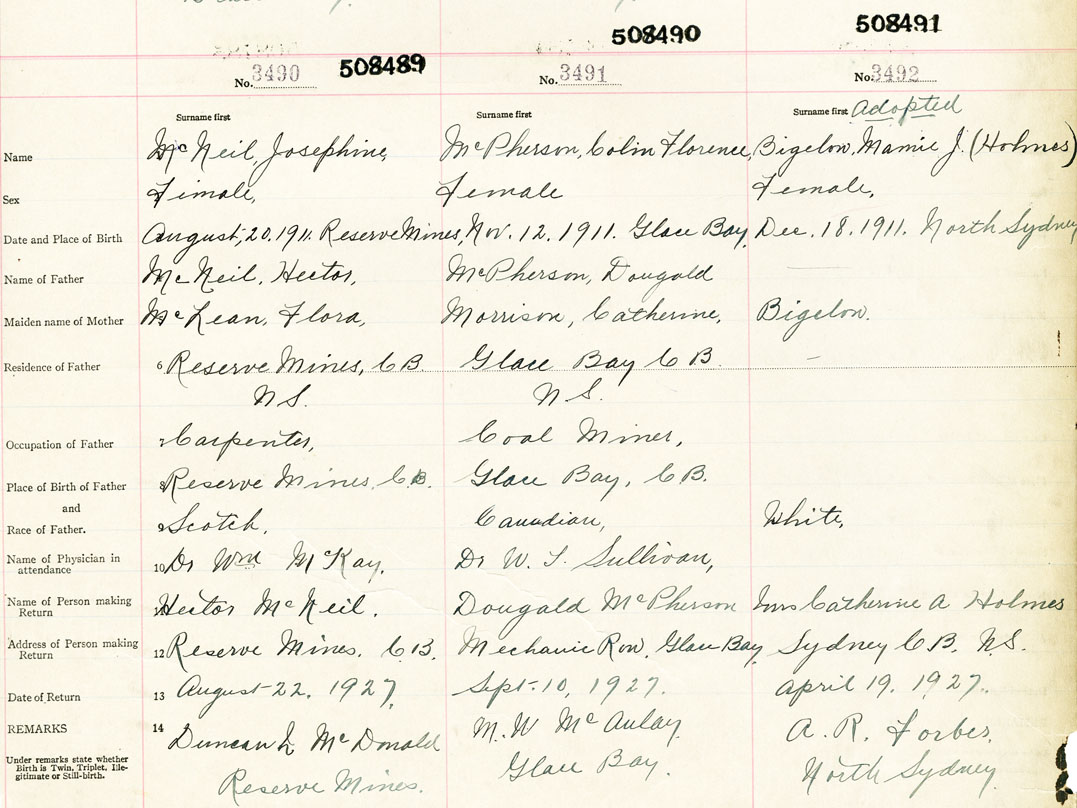 508489 508490 508491
No. 3490 No. 3491 No. 3492
Surname first Surname first Surname first Adopted
Name McNeil, Josephine, McPherson, Colin Florence, Bigelow, Mamie J. (Holmes)
Sex Female, Female Female,
Date and Place of Birth August, 20. 1911. Reserve Mines, Nov. 12. 1911. Glace Bay, Dec. 18. 1911. North Sydney
Name of Father McNeil, Hector, McPherson, Dougald
Maiden name of Mother McLean, Flora, Morrison, Catherine, Bigelow.
Residence of Father 6 Reserve Mines, C B. Glace Bay C B.
N S. N S.
Occupation of Father Carpenter, Coal Miner,
Place of Birth of Father 8 Reserve Mines. C.B. Glace Bay, C B.
and
Race of Father. 9 Scotch, Canadian, White,
Name of Physician in
attendance 10 Dr Wm McKay, Dr W. J. Sullivan,
Name of Person making
Return Hector McNeil. Dougald McPherson Mrs Catherine A Holmes
Address of Person making
Return 12 Reserve Mines. C.B. Mechanic Row, Glace Bay, Sydney C.B. N.S.
Date of Return 13 August 22. 1927, Sept. 10, 1927. April 19. 1927.
REMARKS 14 Duncan L McDonald M. W McAulay A. R. Forbes,
Under remarks state whether
Birth is Twin, Triplet, Ille-
gitimate or Still-birth. Reserve Mines. Glace Bay. North Sydney